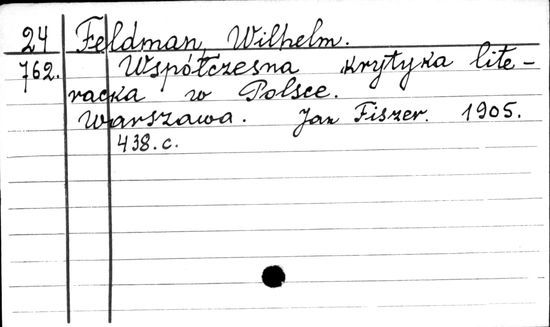 24 Feldman, Wilhelm.
762. Współczesna krytyka lite-
racka w Polsce.
Warszawa. Jan Fiszer. 1905.
438.c.